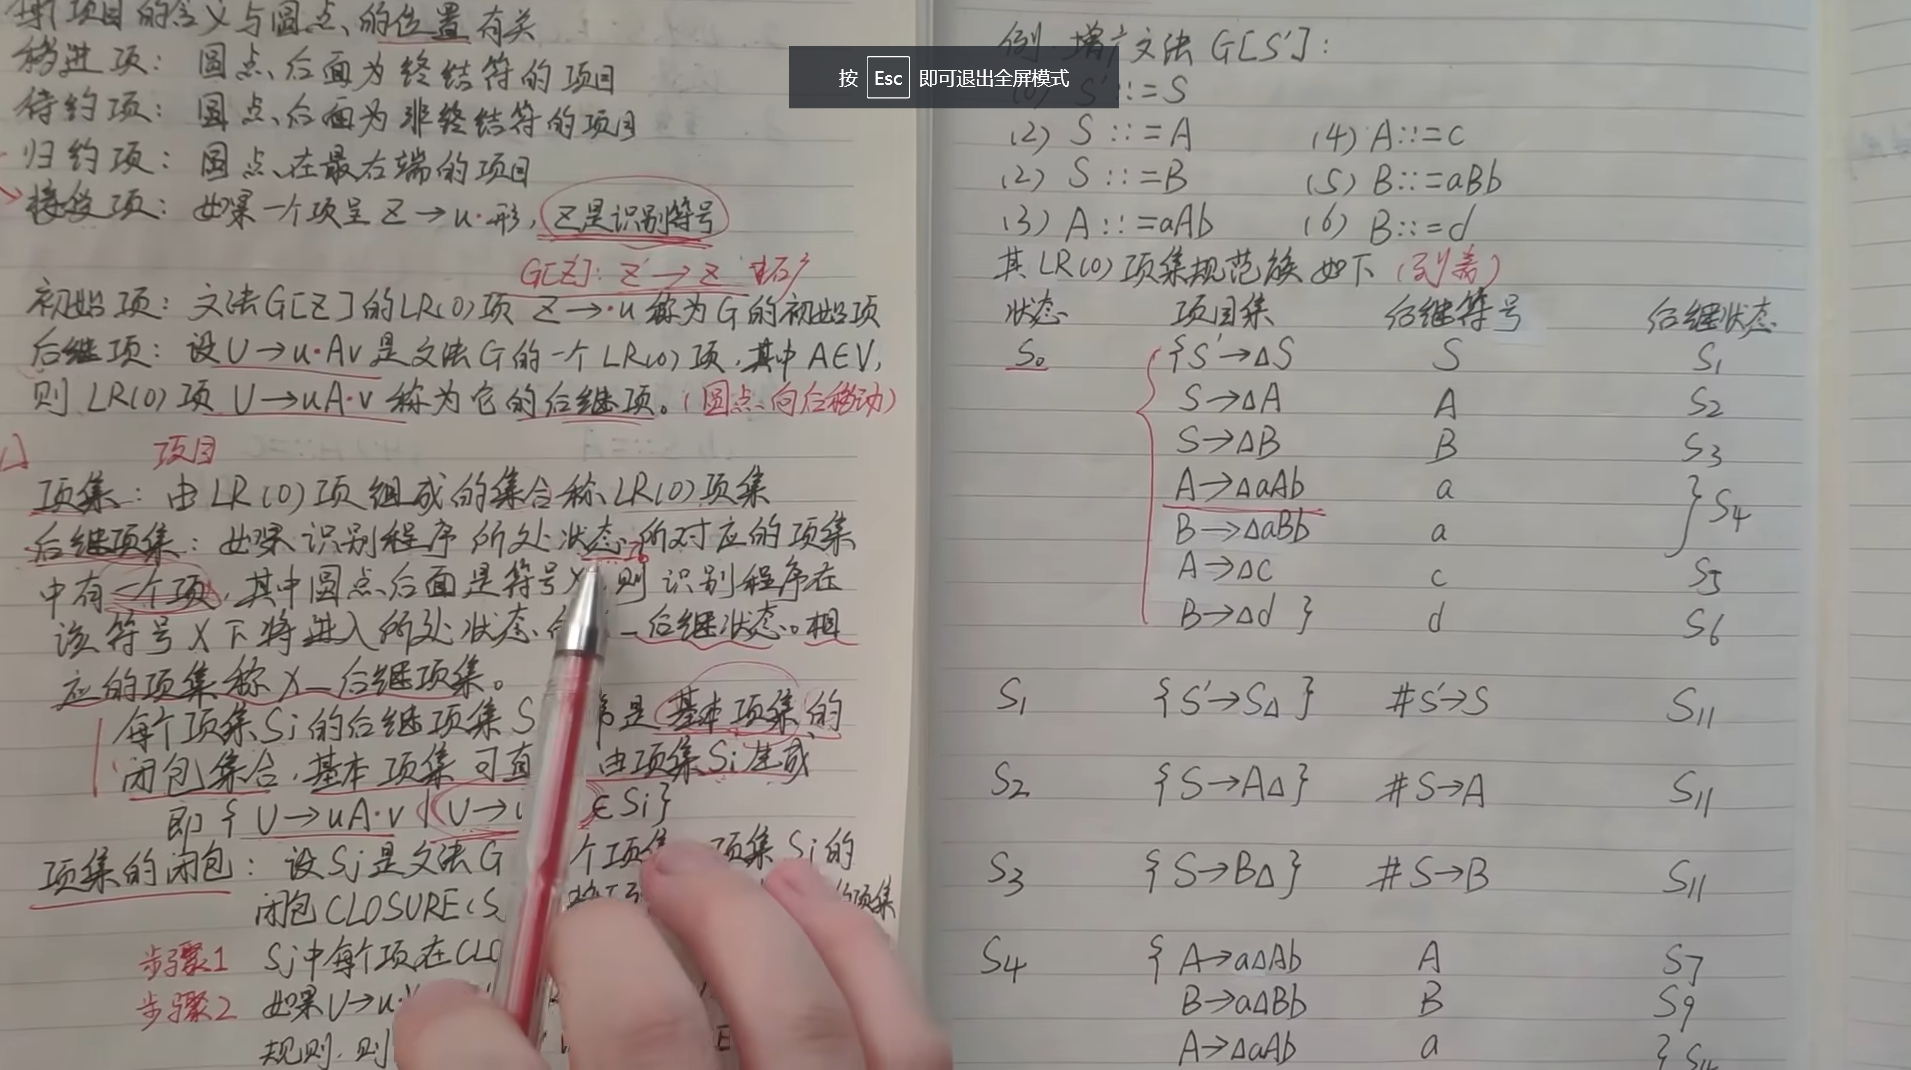 项目的含义与圆点的位置有关
移进项：圆点后面为终结符的项目
待约项：圆点后面为非终结符的项目
归约项：圆点在最右端的项目
接受项：如果一个项呈 Z→u·形，Z是识别符号
G[Z']：Z'→Z
初始项：文法G[Z]的LR(0)项 Z→·u 称为G的初始项
后继项：设U→u·Av是文法G的一个LR(0)项，其中A∈V，
则LR(0)项 U→uA·v 称为它的后继项。(圆点向后移动)
项目
项集：由LR(0)项组成的集合称LR(0)项集
后继项集：如果识别程序所处状态所对应的项集
中有一个项，其中圆点后面是符号X，则识别程序在
该符号X下将进入所处状态 后继状态。相
应的项集称X—后继项集。
每个项集Si的后继项集S 是基本项集的
闭包集合，基本项集可直 由项集Si生成
即{U→uA·v|U→u ∈Si}
项集的闭包：设Sj是文法G 个项集 项集Sj的
闭包CLOSURE(S 项集
步骤1 Sj中每个项在CLO
步骤2 如果U→u·
规则，则
按 Esc 即可退出全屏模式
例 增广文法G[S']：
S'::=S
(2) S::=A (4) A::=c
(2) S::=B (5) B::=aBb
(3) A::=aAb (6) B::=d
其LR(0)项集规范族如下
状态 项目集 后继符号 后继状态
S0 {S'→ΔS S S1
S→ΔA A S2
S→ΔB B S3
A→ΔaAb a } S4
B→ΔaBb a
A→Δc c S5
B→Δd } d S6
S1 {S'→SΔ} #S'→S S11
S2 {S→AΔ} #S→A S11
S3 {S→BΔ} #S→B S11
S4 {A→aΔAb A S7
B→aΔBb B S9
A→ΔaAb a } S4